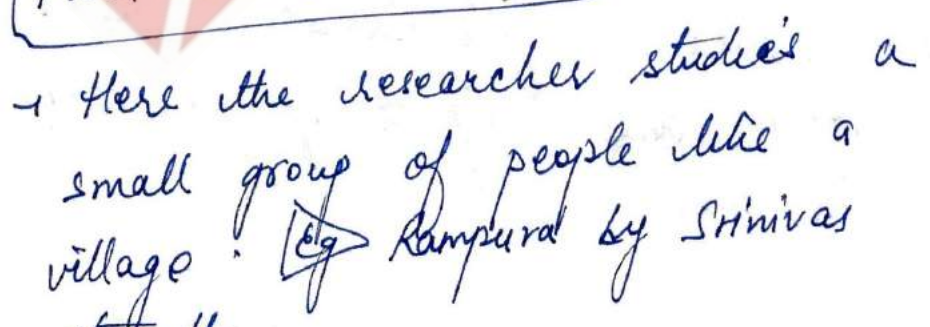 → Here the researcher studies a
small group of people like a
village. Eg Rampura by Srinivas